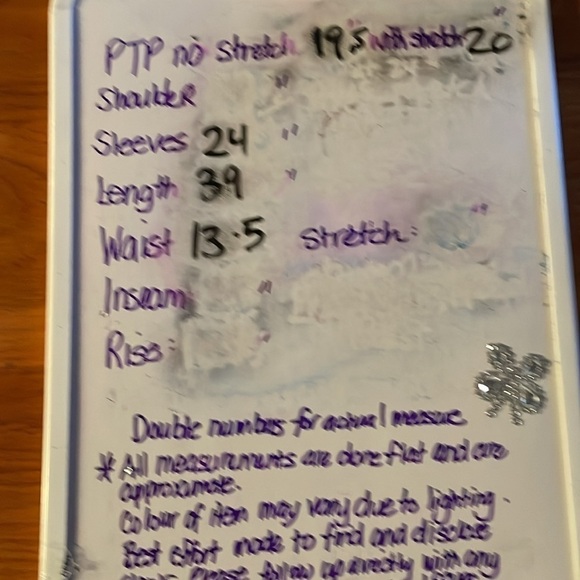 PTP no stretch 19.5" with stretch 20"
Shoulder "
Sleeves 24 "
Length 39 "
Waist 13.5 stretch: "
Inseam "
Rise: "
Double numbers for actual measure
* All measurements are done flat and are
approximate.
Colour of item may vary due to lighting.
Best effort made to find and disclose
Please follow up directly with any